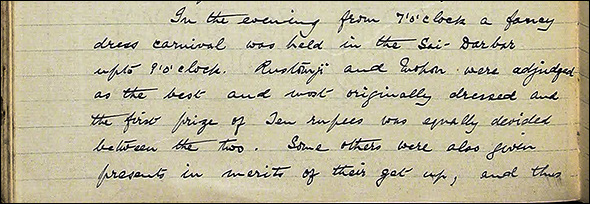 In the evening from 7'o'clock a fancy
dress carnival was held in the Sai-Darbar
upto 9'o'clock. Rustomji and Mohon were adjudged
as the best and most originally dressed and
the first prize of Ten rupees was equally devided
between the two. Some others were also given
presents in merits of their get up, and thus